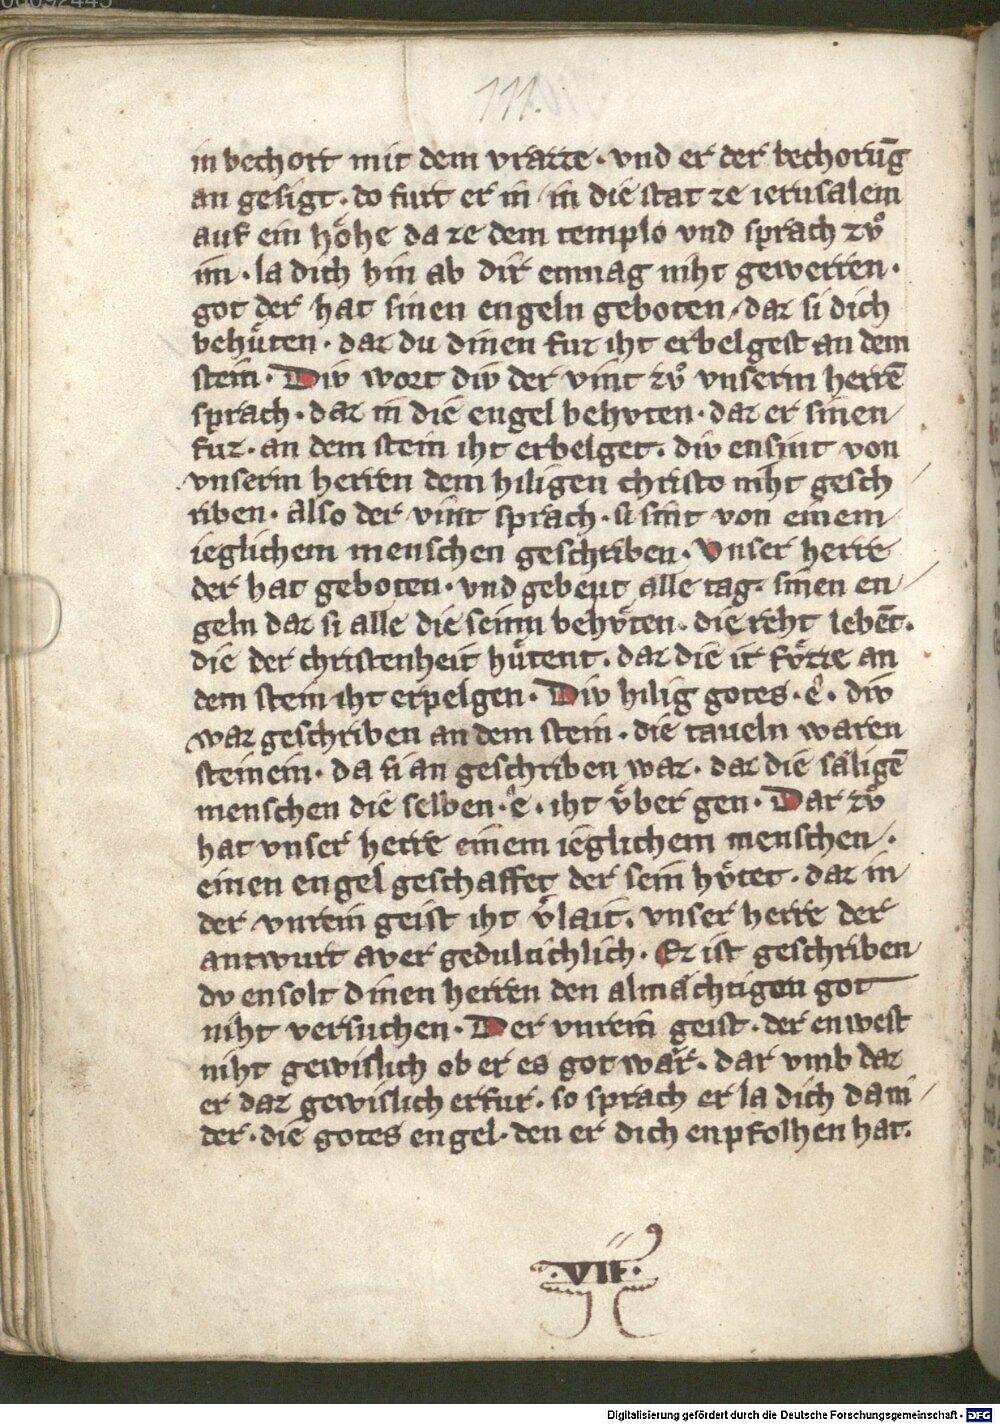 111.
in bechort mit dem vrazze · vnd er der bechorūg
an gesigt · do furt er in in die stat ze ierusalem
auf ein hoͤhe da ze dem templo vnd sprach zvͦ
im · la dich hin ab dir enmag niht gewerren ·
got der hat sinen engeln geboten / daz si dich
behuͤten · daz du dinen fuz iht erbelgest an dem
stein · Div wort div der vint zvͦ vnserm herrē
sprach · daz in die engel behvten · daz er sinen
fuz · an dem stein iht erbelget · div ensint von
vnserm herren dem hiligen christo niht gesch
riben · also der vint sprach · si sint von einem
ieglichem menschen geschriben · Vnser herre
der hat geboten · vnd gebeut alle tag · sinen en
geln daz si alle die seinn behvͤten · die reht lebēt ·
die der christenheit huͤtent · daz die ir fvͤzze an
dem stein iht erpelgen · Div hilig gotes · e · div
waz geschriben an dem stein · die taueln waren
steinein · da si an geschriben waz · daz die saͤligē
menschen die selben · e · iht vͤber gen · Dar zvͦ
hat vnser herre einem ieglichem menschen ·
einen engel geschaffet der sein hvͤtet · daz in
der vnrein geist iht v̓lait · vnser herre der
antwurt aver gedultichlich · Ez ist geschriben
dv ensolt dinen herren den almaͤchtigen got
niht versuchen · Der vnrein geist · der enwest
niht gewislich ob er es got waͤr · dar vmb daz
er daz gewislich erfur · so sprach er la dich dani
der · die gotes engel · den er dich enpfolhen hat ·
· VII ·
Digitalisierung gefördert durch die Deutsche Forschungsgemeinschaft - DFG